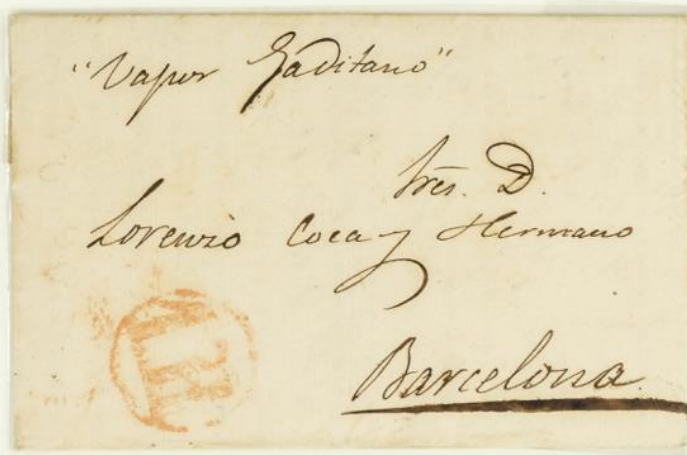 "Vapor Gaditano"
Sres. D.
Lorenzo Coca y Hermano
Barcelona